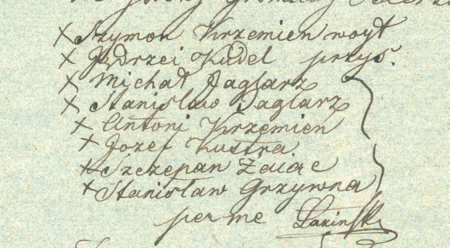 x Szymon Krzemien woyt
x Jędrzei Kudel przys.
x Michał Jaglarz
x Stanislaw Jaglarz
x Antoni Krzemien
x Jozef Kustra
x Szczepan Zaiąc
x Stanislaw Grzywna
per me Lazinski